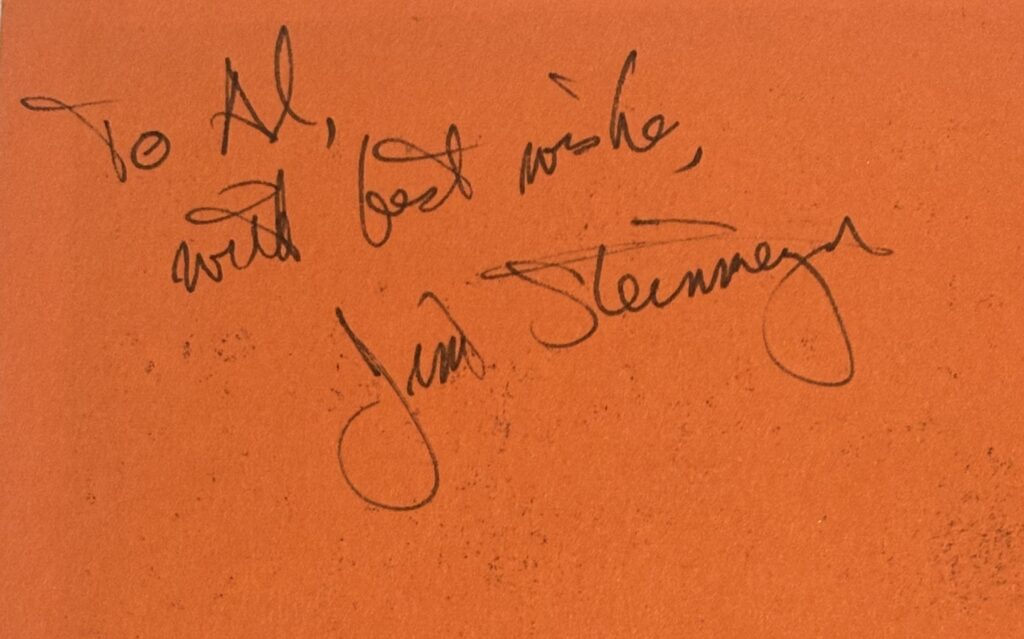 To Al,
with best wishes,
Jim Steinmeyer